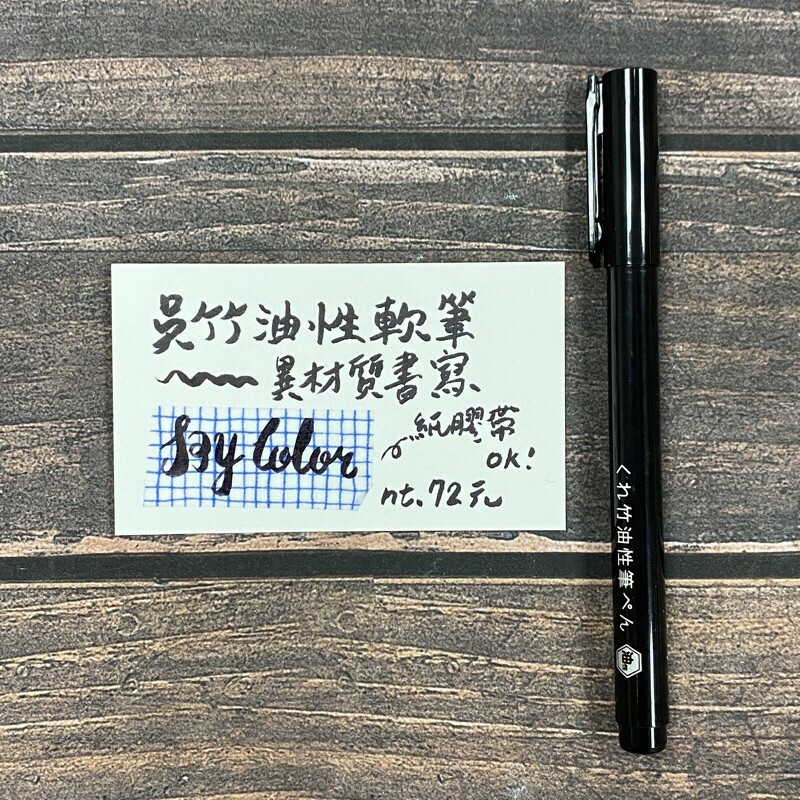 呉竹油性軟筆
異材質書寫
Say Color
紙膠帶
OK!
nt.72元
くれ竹油性筆ぺん
油性